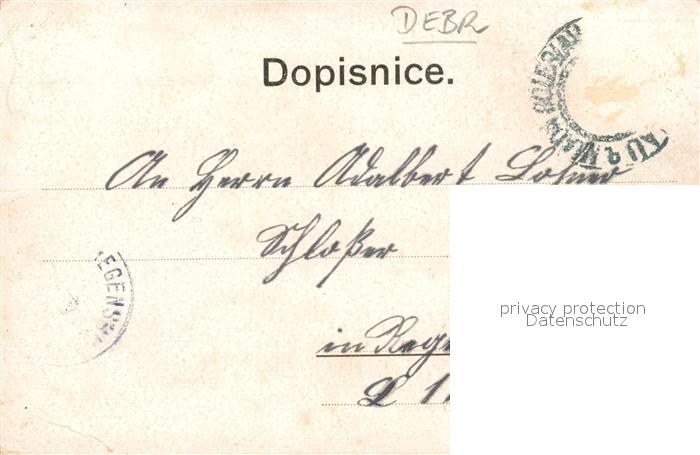 DEBR
Dopisnice.
An Herrn Adalbert Lohner
Schloßer
EGENS
in Rege
L 1
privacy protection
Datenschutz